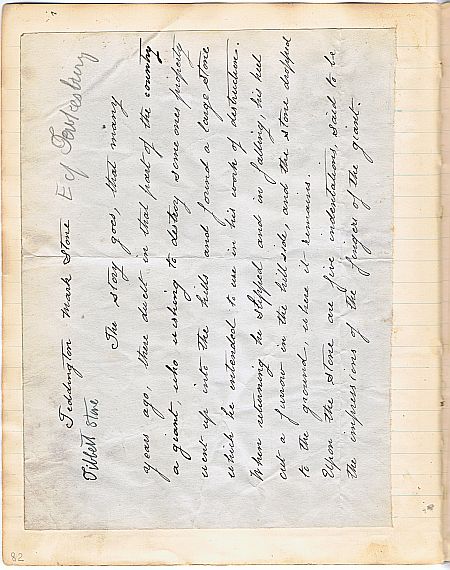 Teddington Mark Stone E of Tewkesbury
Tibbett Stone
The story goes, that many
years ago, there dwelt in that part of the country
a giant, who wishing to destroy some ones property
went up into the hills and found a large stone
which he intended to use in his work of destruction.
When returning he slipped and in falling, his heel
cut a furrow in the hill side, and the stone dropped
to the ground, where it remains.
Upon the stone are five indentations, said to be
the impressions of the fingers of the giant.
82